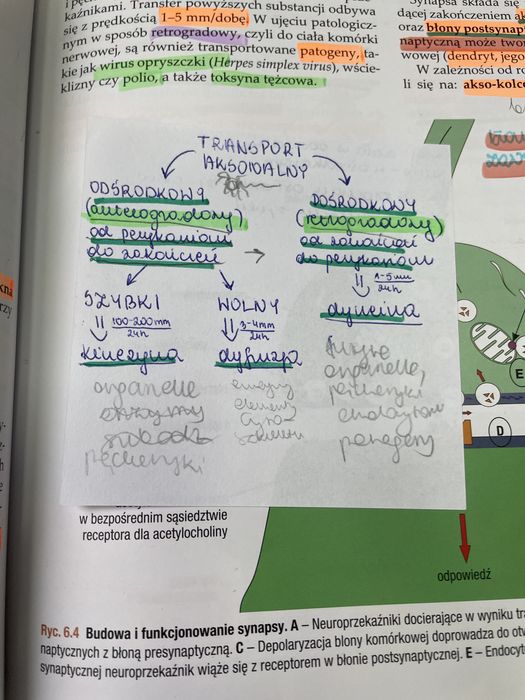 kaźnikami. Transfer powyższych substancji odbywa
się z prędkością 1–5 mm/dobę. W ujęciu patologicz-
nym w sposób retrogradowy, czyli do ciała komórki
nerwowej, są również transportowane patogeny, ta-
kie jak wirus opryszczki (Herpes simplex virus), wście-
klizny czy polio, a także toksyna tężcowa.
Synapsa składa się
dącej zakończeniem
oraz błony postsynap
naptyczną może twor
wowej (dendryt, jego
W zależności od ro
li się na: akso-kolc
TRANSPORT
AKSONALNY
ODŚRODKOWY
(anterogradowy)
od perykarionu
do zakończeń
DOŚRODKOWY
(retrogradowy)
od zakończeń
do perykarionu
1-5 mm
24h
dyneina
SZYBKI
100-200mm
24h
kinezyna
WOLNY
3-4mm
24h
dyfuzja
organelle
pęcherzyki
enzymy
elementy
zużyte
organelle,
pęcherzyki
patogeny
E
D
w bezpośrednim sąsiedztwie
receptora dla acetylocholiny
odpowiedź
Ryc. 6.4 Budowa i funkcjonowanie synapsy. A – Neuroprzekaźniki docierające w wyniku tra
naptycznych z błoną presynaptyczną. C – Depolaryzacja błony komórkowej doprowadza do otw
synaptycznej neuroprzekaźnik wiąże się z receptorem w błonie postsynaptycznej. E – Endocyt